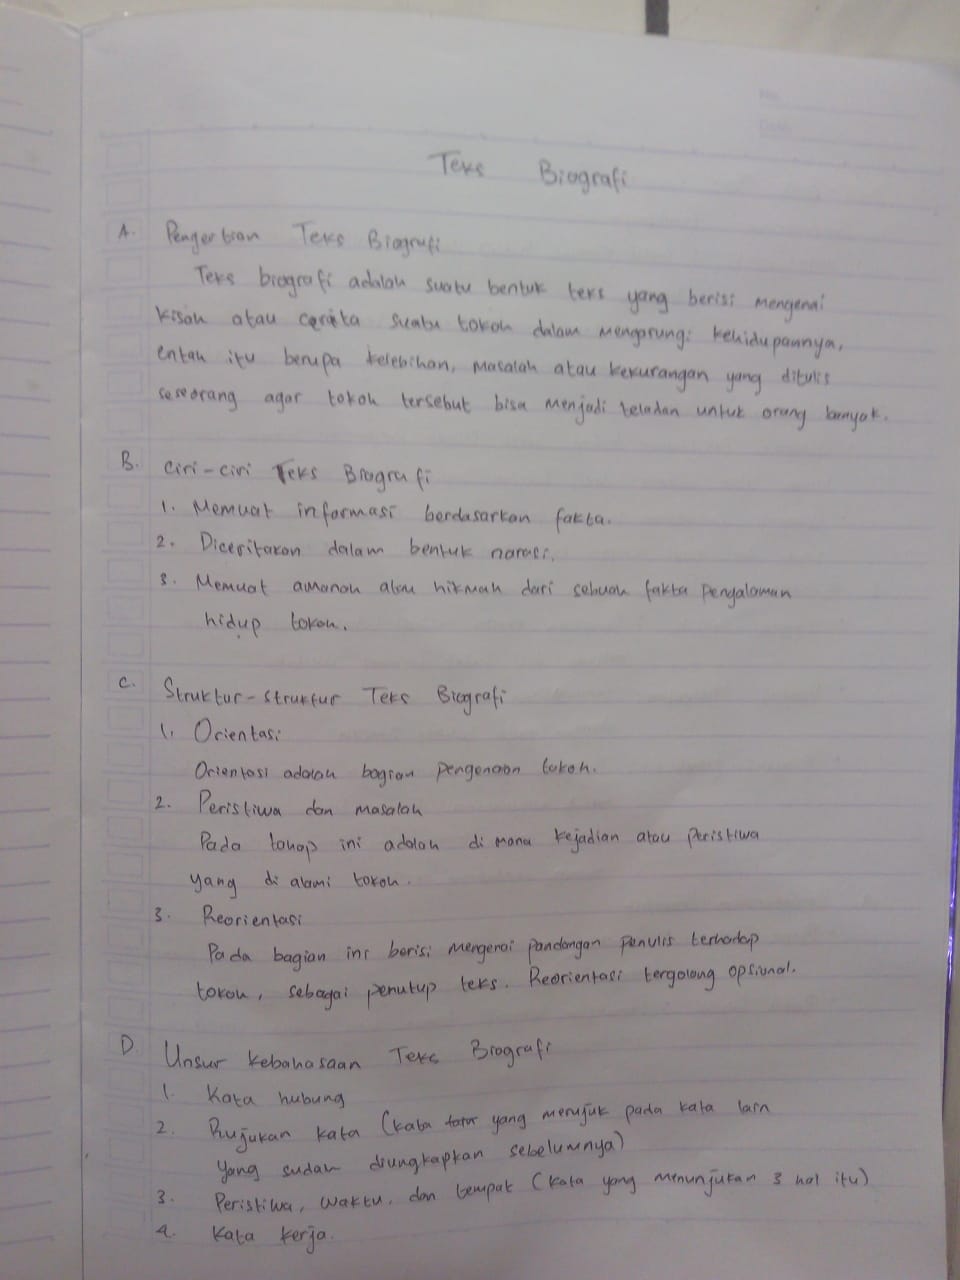 Teks Biografi
A. Pengertian Teks Biografi
Teks biografi adalah suatu bentuk teks yang berisi mengenai
kisah atau cerita suatu tokoh dalam mengarungi kehidupannya,
entah itu berupa kelebihan, masalah atau kekurangan yang ditulis
seseorang agar tokoh tersebut bisa menjadi teladan untuk orang banyak.
B. Ciri-ciri Teks Biografi
1. Memuat informasi berdasarkan fakta.
2. Diceritakan dalam bentuk narasi.
3. Memuat amanah atau hikmah dari sebuah fakta pengalaman
hidup tokoh.
C. Struktur-struktur Teks Biografi
1. Orientasi
Orientasi adalah bagian pengenaan tokoh.
2. Peristiwa dan masalah
Pada tahap ini adalah di mana kejadian atau peristiwa
yang di alami tokoh.
3. Reorientasi
Pada bagian ini berisi mengenai pandangan penulis terhadap
tokoh, sebagai penutup teks. Reorientasi tergolong opsional.
D. Unsur kebahasaan Teks Biografi
1. Kata hubung
2. Rujukan kata (kata yang merujuk pada kata lain
yang sudah diungkapkan sebelumnya)
3. Peristiwa, waktu, dan tempat (kata yang menunjukan 3 hal itu)
4. Kata kerja.